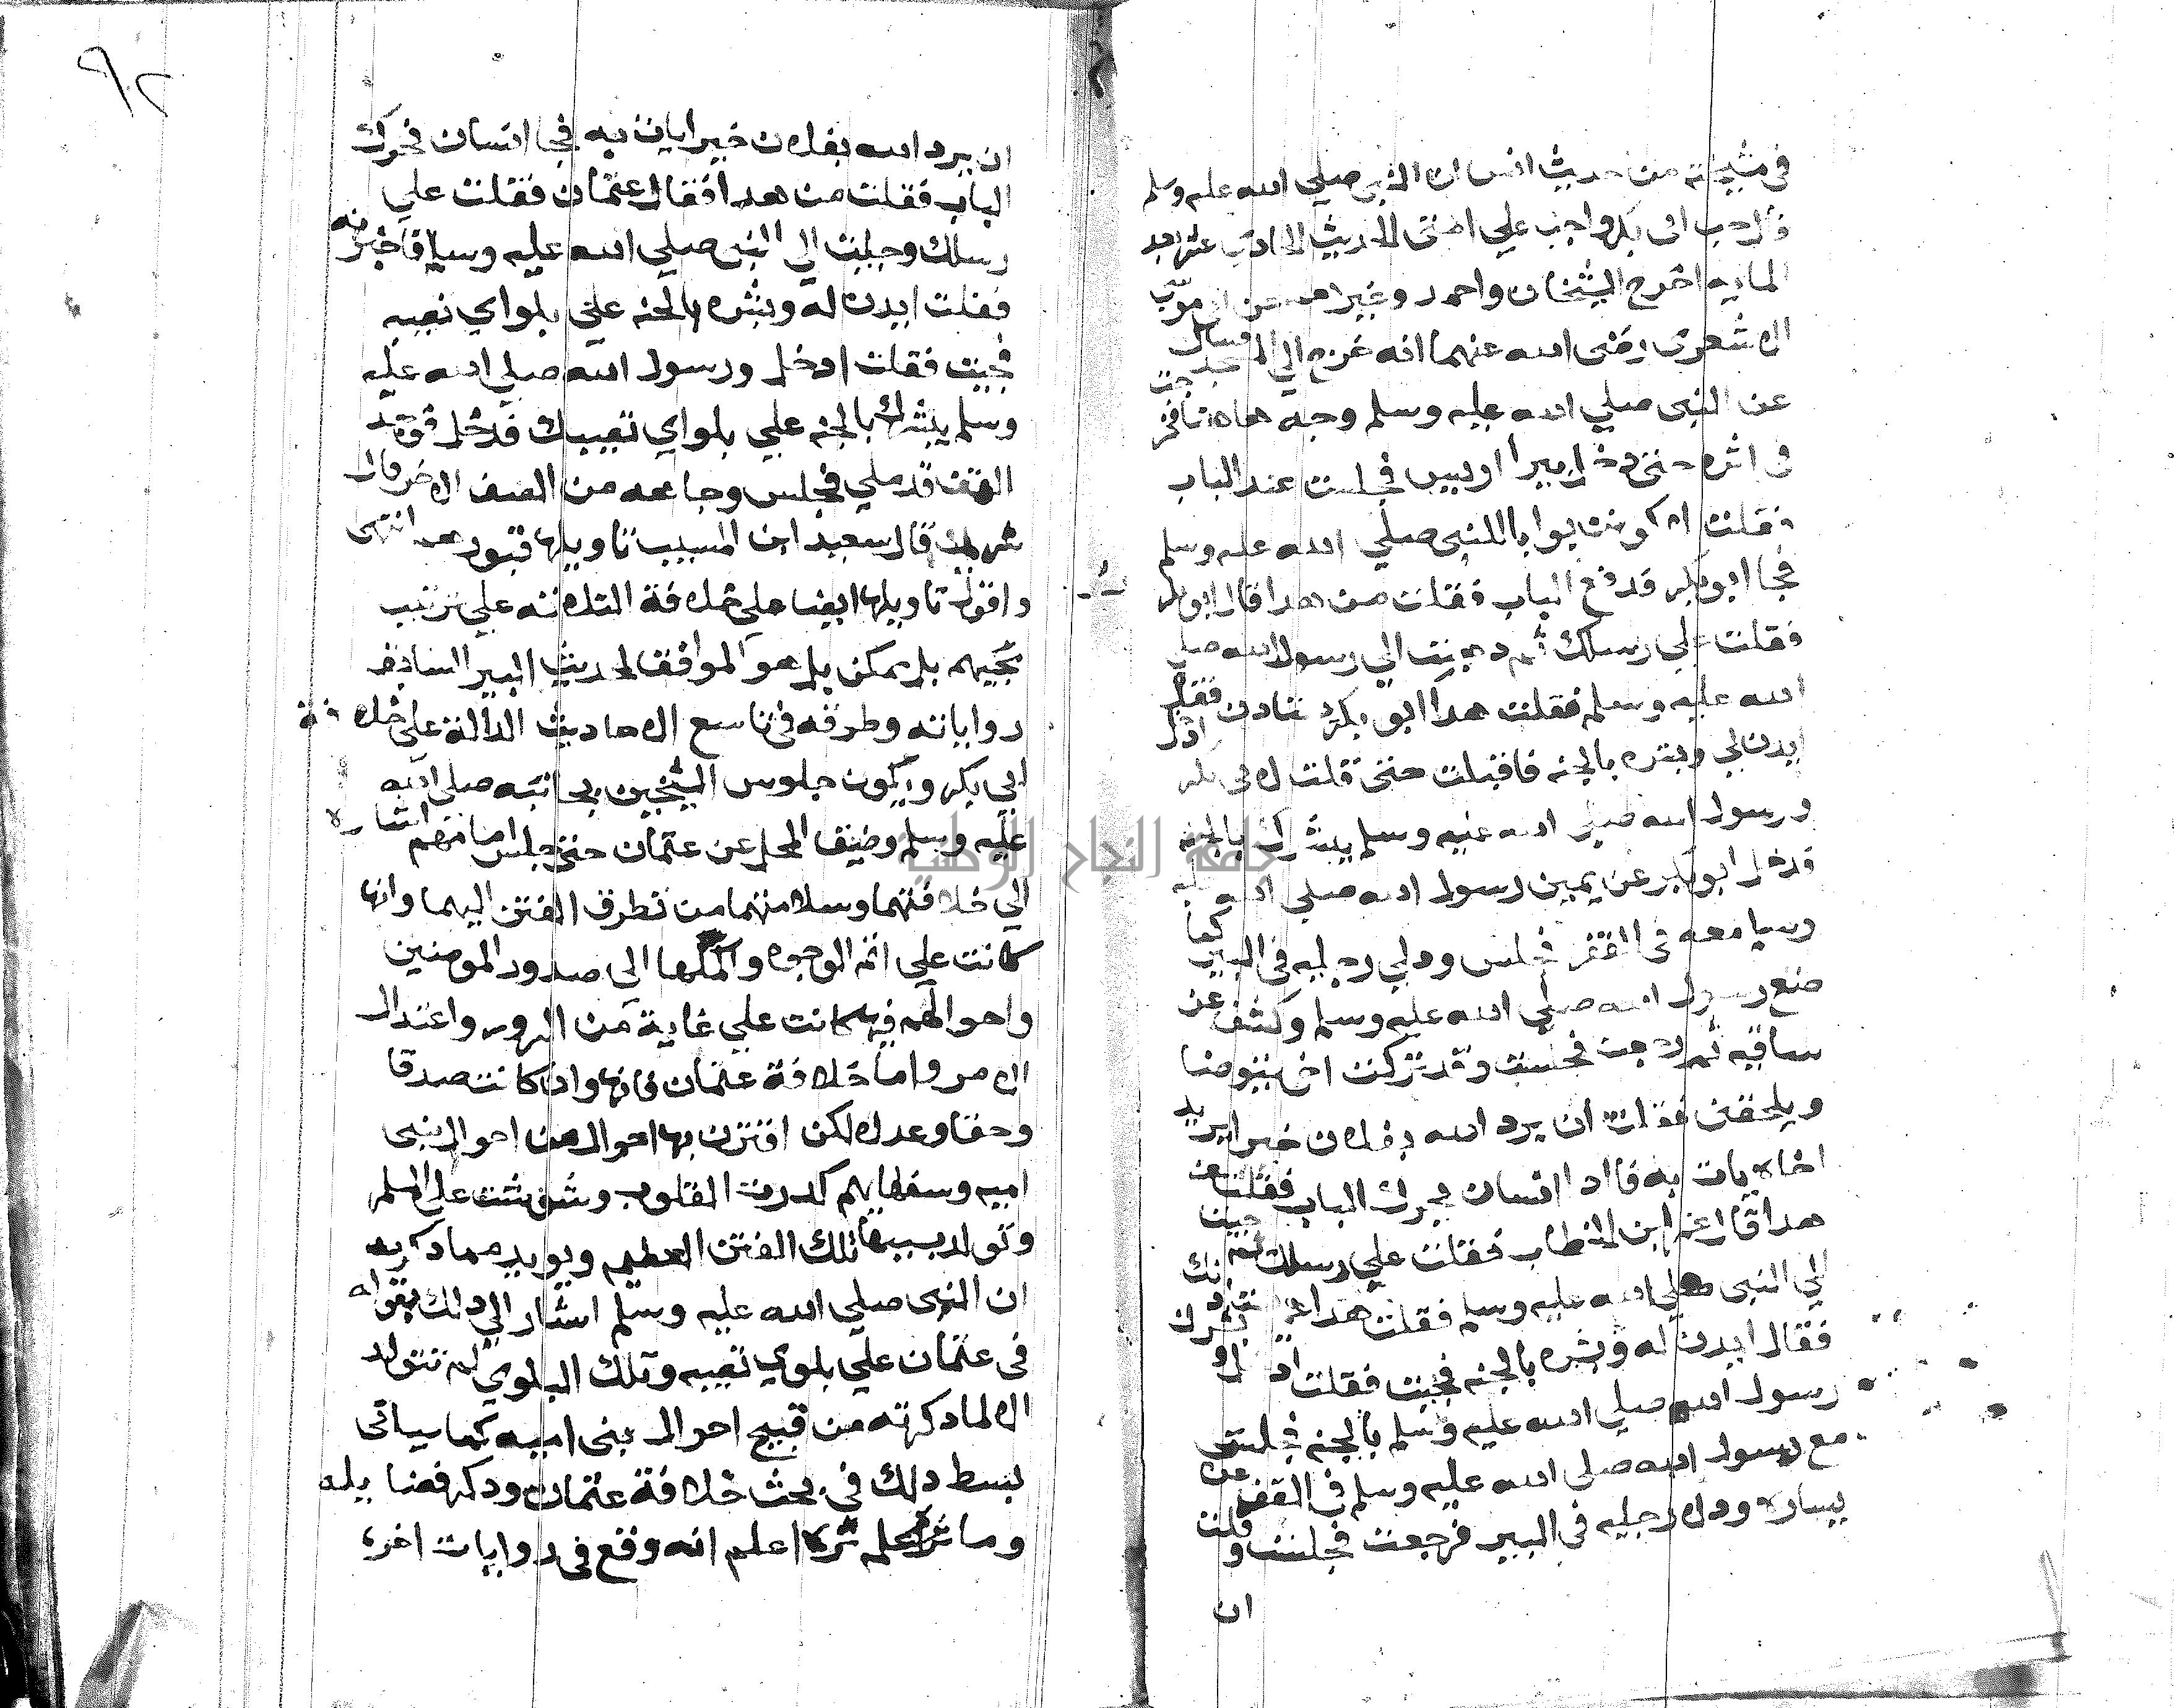 في مشيخته من حديث انس ان النبي صلي الله عليه وسلم
قال حب ابى بكر واجب علي امتى الحديث الحادي عشر بعد
المايه اخرج الشيخان واحمد وغيرهما عن ابى موسى
الاشعرى رضى الله عنهما انه خرج الي المسجد فسال
عن النبى صلي الله عليه وسلم وجه هاهنا فخرجت
في اثره حتى دخل بيرا اريس فجلست عند الباب
فقلت لاكونن بوابا للنبى صلي الله عليه وسلم
فجا ابو بكر فدفع الباب فقلت من هدا قال ابو بكر
فقلت علي رسلك ثم دهبت الي رسول الله صلي
الله عليه وسلم فقلت هدا ابو بكر يستادن فقال
ايدن لي وبشره بالجنه فاقبلت حتى قلت لابى بكر ادخل
ورسول الله صلي الله عليه وسلم يبشرك بالجنه
فدخل ابو بكر عن يمين رسول الله صلي الله عليه
وسلم معه في القف فجلس ودلي رجليه في البير كما
صنع رسول الله صلي الله عليه وسلم وكشف عن
ساقيه ثم رجعت فجلست وقد تركت اخى يتوضا
ويلحقنى فقلت ان يرد الله بفلان خيرا يريد
اخاه يات به فاادا انسان يحرك الباب فقلت من
هدا قال عمر ابن الخطاب فقلت علي رسلك ثم جيت
الي النبى صلي الله عليه وسلم فقلت هدا عمر يستادنك
فقال ايدن له وبشره بالجنه فجيت فقلت ادخل و يبشرك
رسول الله صلي الله عليه وسلم بالجنه فجلس
مع رسول الله صلي الله عليه وسلم في القف عن
يساره ودلا رجليه في البير فرجعت فجلست وقلت
ان
٩٢
ان يرد الله بفلان خيرا يات به فجا انسان فحرك
الباب فقلت من هدا فقال عثمان فقلت علي
رسلك وجيت الي النبى صلي الله عليه وسلم فاخبرته
فقلت ايدن له وبشره بالجنه علي بلواي تصيبه
فجيت فقلت ادخل ورسول الله صلي الله عليه
وسلم يبشرك بالجنه علي بلواي تصيبك فدخل فوجد
القف قد ملي فجلس وجاهه من الصف الاخر قال
شريك قال سعيد ابن المسيب تاويلها قبورهم انتهى
واقول تاويلها ايضا على خلافة الثلاثه علي ترتيب
مجيهم بل يمكن بل هو الموافق لحديث البير السابق
رواياته وطرقه في تاسع الاحاديث الدالة على خلافة
ابي بكر ويكون جلوس الشيخين بجانبه صلي الله
عليه وسلم وضيق المحل عن عثمان حتى جلس امامهم اشاره
الي خلافتهما وسلامتهما من تطرق الفتن اليهما وانها
كانت علي اتم الوجوه واكملها الي صدور المومنين
واحوالهم فيها كانت علي غاية من السرور واعتدال
الامر واما خلافة عثمان فانها وان كانت صدقا
وحقا وعدلا لكن اقترن بها احوال من احوال بنى
اميه وسفهايهم كدرت القلوب وشوشت على المسلمين
وتولد بسببها تلك الفتن العظيم ويويد مما دكر به
ان النبى صلي الله عليه وسلم اشار الي دلك بقوله
في عثمان علي بلوي تصيبه وتلك البلوي لم تتولد
الا لما دكرته من قبيح احوال بنى اميه كما سياتى
بسط دلك في بحث خلافة عثمان ودكر فضايله
وماثره اعلم انه وقع في روايات اخر
جامعة النجاح الوطنية